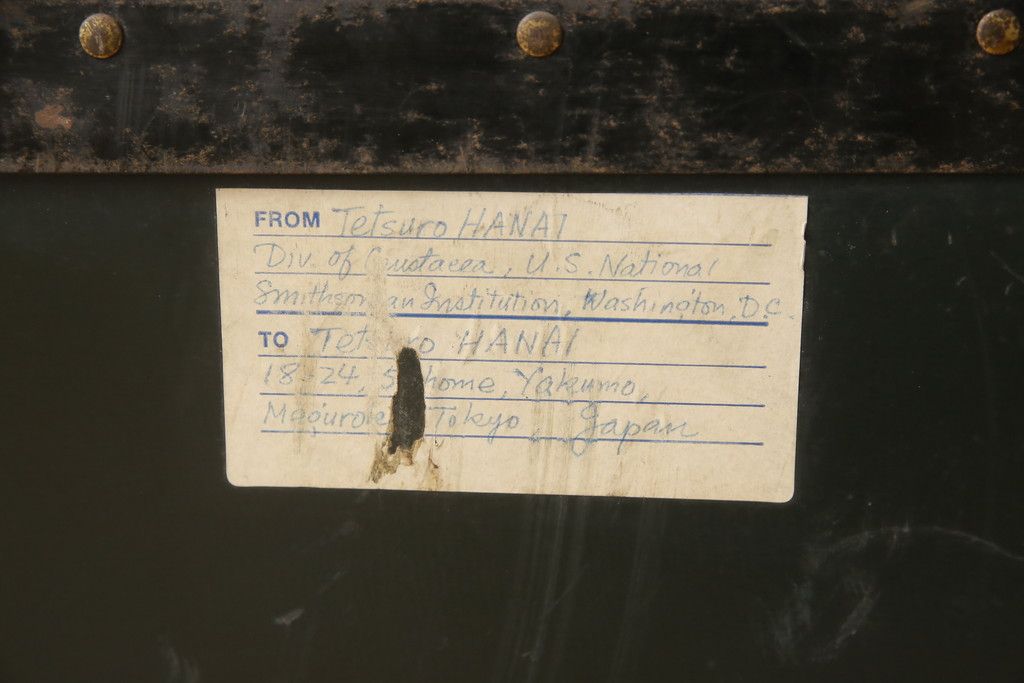 FROM Tetsuro HANAI
Div. of Crustacea, U.S. National
Smithsonian Institution, Washington, D.C.
TO Tetsuro HANAI
18-24, 5 home, Yakumo,
Meguroke Tokyo, Japan